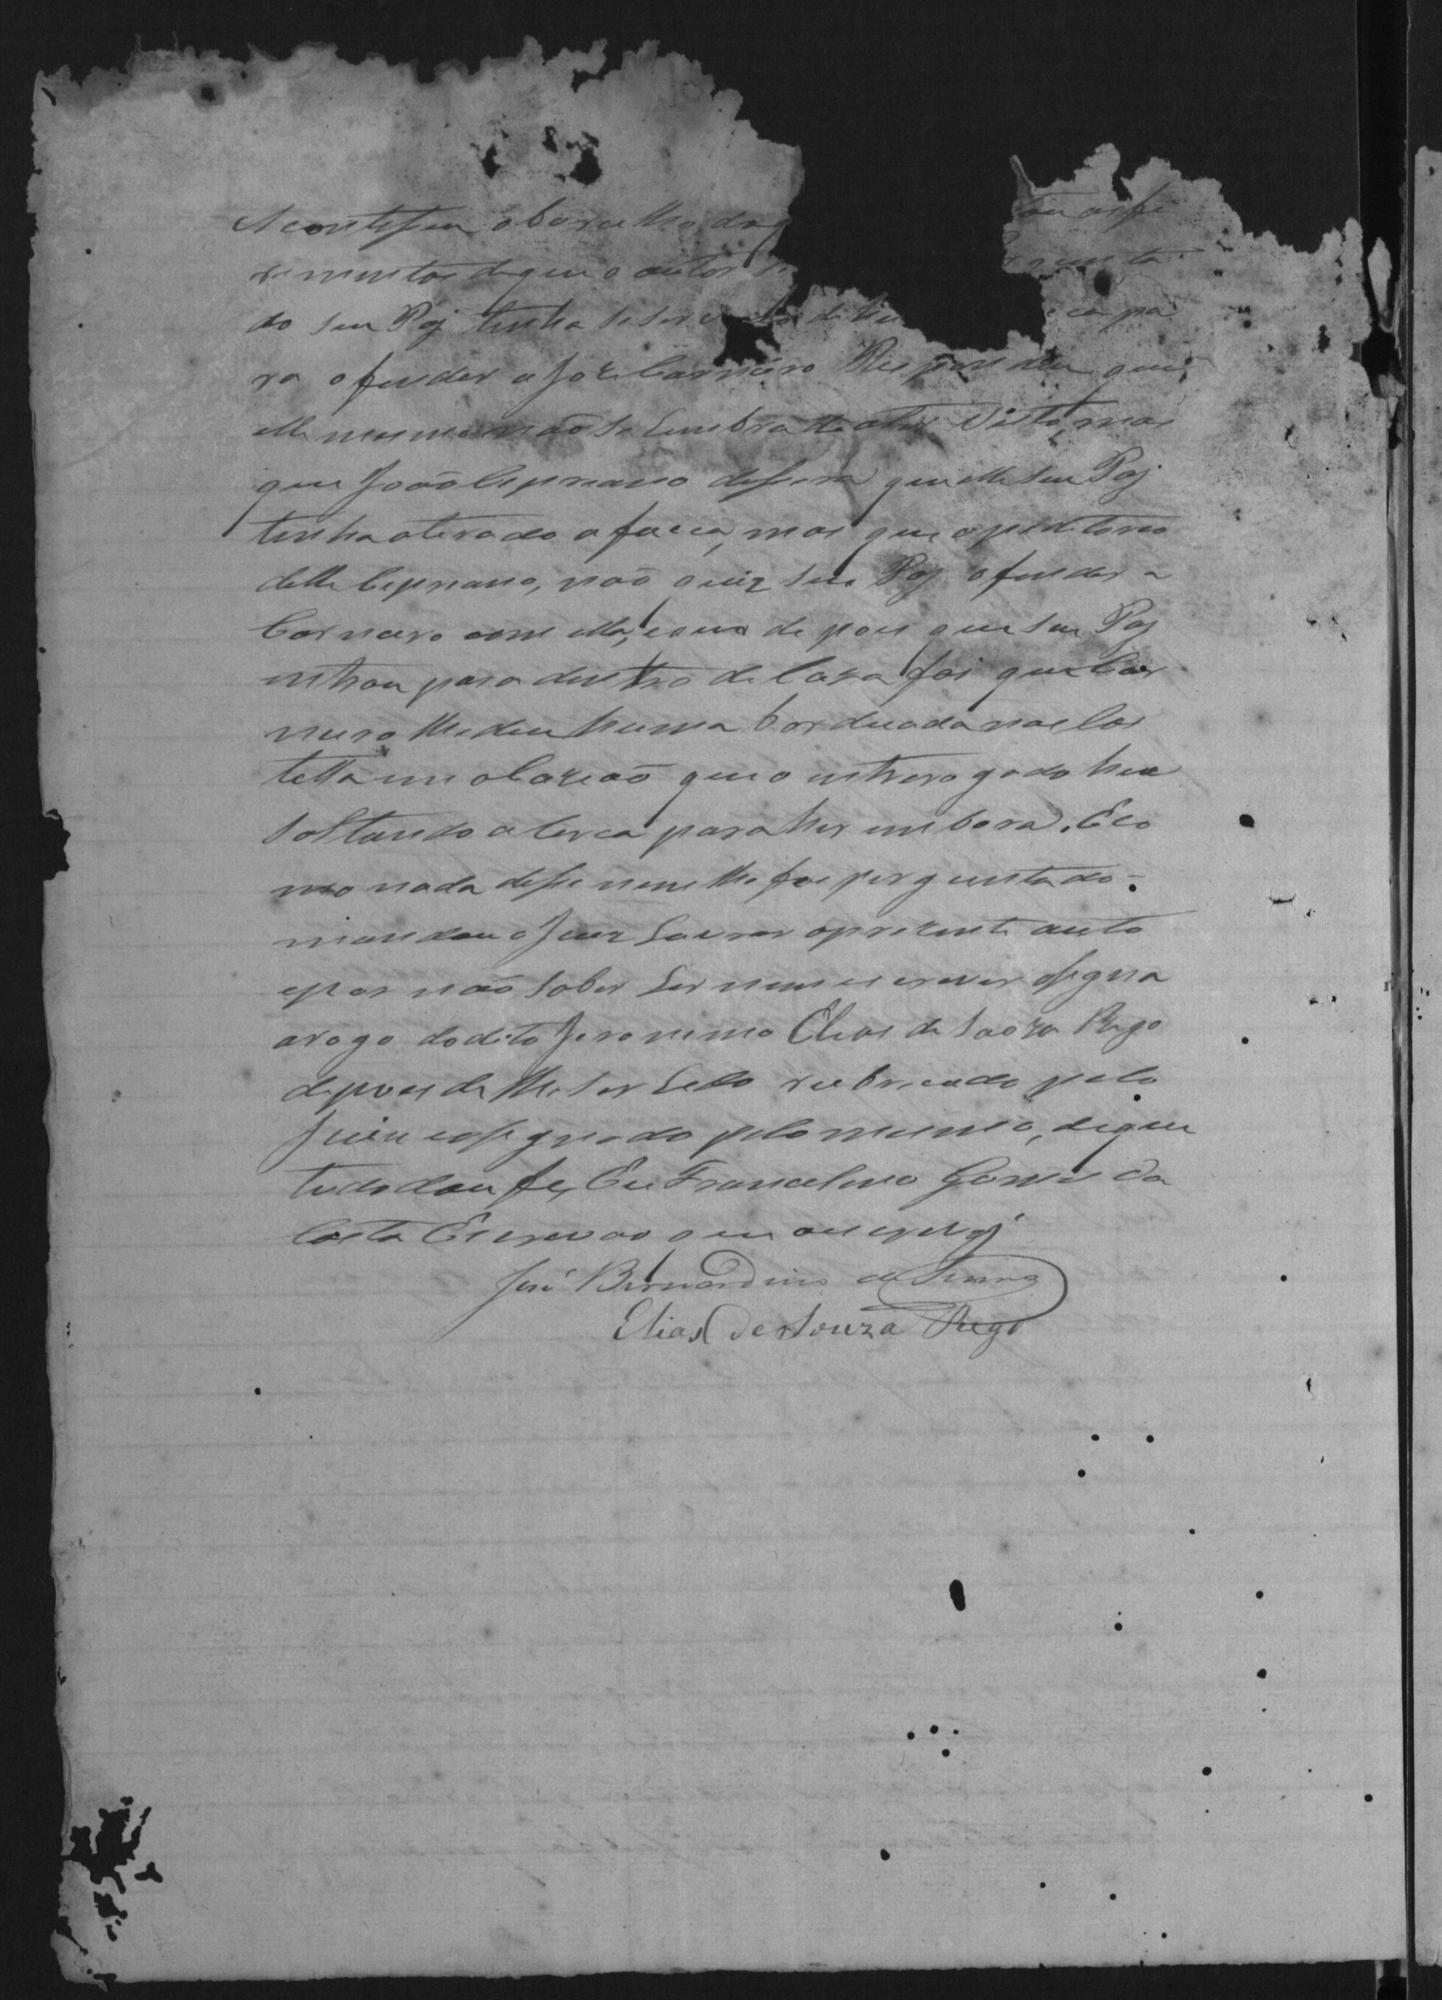 Aconteseu o barulho do
rimentos de que o autor
do seu Paj tinha se servido de ca pa
ra ofender a Joze Carneiro Respondeu que
elle mesmo não se lembra de o ter visto, mas
que João Cepriano disera que elle seu Paj
tinha aterado a faca, mas que apeditorio
delle Cepriano, não quiz seu Paj ofender a
Carneiro com ella, e que de pois que seu Paj
entrou para dentro de Caza foi que Car
neiro lhe deu huma borduada nas Cos
tella em ocazião que o enterogado hia
soltando a cerca para hir embora. E co
mo nada disse nem lhe foi perguntado
mandou o Juiz Lavrar o prezente auto
e por não saber Ler nem escrever asigna
arogo do dito Jeronimo Elias de Souza Rego
depois de lhe ser Lido rubricado pelo
Juiz e asignado pelo mesmo, de que
tudo dou fé, Eu Francelino Gomes da
Costa Escrivão que o escrevy
José Bernardino de
Elias de Souza Rego